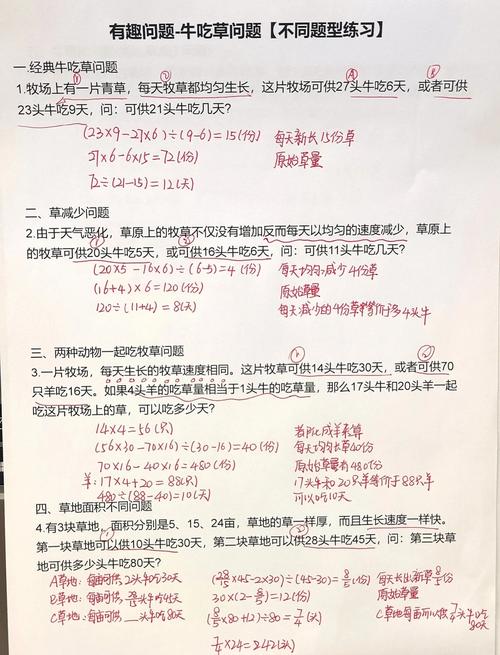 有趣问题-牛吃草问题【不同题型练习】
一.经典牛吃草问题
1.牧场上有一片青草，每天牧草都均匀生长，这片牧场可供27头牛吃6天，或者可供
23头牛吃9天，问：可供21头牛吃几天？
(23×9-27×6)÷(9-6)=15(份) 每天新长15份草
27×6-6×15=72(份) 原始草量
72÷(21-15)=12(天)
二、草减少问题
2.由于天气恶化，草原上的牧草不仅没有增加反而每天以均匀的速度减少，草原上
的牧草可供20头牛吃5天，或可供16头牛吃6天，问：可供11头牛吃几天？
(20×5-16×6)÷(6-5)=4(份) 每天均匀减少4份草
(16+4)×6=120(份) 原始草量
120÷(11+4)=8(天) 每天减少的4份草等价于多4头牛
三、两种动物一起吃牧草问题
3.一片牧场，每天生长的牧草速度相同。这片牧草可供14头牛吃30天，或者可供70
只羊吃16天。如果4头羊的吃草量相当于1头牛的吃草量，那么17头牛和20头羊一起
吃这片牧场上的草，可以吃多少天？
14×4=56(只)
(56×30-70×16)÷(30-16)=40(份) 每天均匀长40份
70×16-40×16=480(份) 原始草量有480份
羊:17×4+20=88(只) 17头牛和20只羊等价于88只羊
480÷(88-40)=10(天) 可以吃10天
四、草地面积不同问题
4.有3块草地，面积分别是5、15、24亩，草地的草一样厚，而且生长速度一样快。
第一块草地可以供10头牛吃30天，第二块草地可以供28头牛吃45天，问：第三块草
地可供多少头牛吃80天？
A草地：每亩可供2头牛吃30天 (28/15×45-2×30)÷(45-30)=8/5(份) 每天长出新草8/5份
B草地：每亩可供28/15头牛吃45天 30×(2-8/5)=12(份)
C草地：每亩可供__头牛吃80天 (8/5×80+12)÷80=7/4(头) C草地每亩可以供7/4头牛吃
80天
7/4×24=242(头)